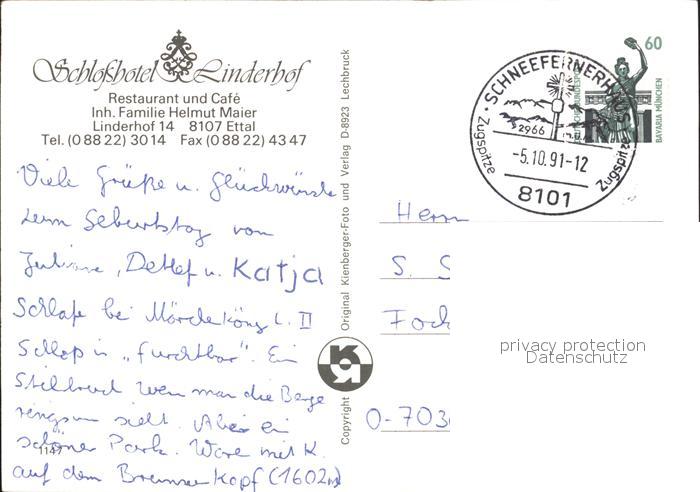 Schloßhotel Linderhof
Restaurant und Café
Inh. Familie Helmut Maier
Linderhof 14 8107 Ettal
Tel. (0 88 22) 30 14 Fax (0 88 22) 43 47
Viele Grüße u. Glückwünsche
zum Geburtstag von
Juliane, Detlef u. Katja
Schlafe bei Märchekönig L. II
Schloß in „furchtbar". Ein
Stilbruch wenn man die Berge
ringsum sieht. Aber ein
schöner Park. Ware mit K.
auf dem Brunnenkopf (1602m)
1147
Copyright Original Kienberger-Foto und Verlag D-8923 Lechbruck
60
DEUTSCHE BUNDESPOST
BAVARIA MÜNCHEN
SCHNEEFERNERHAUS
Zugspitze
Zugspitze
2966 m.ü.
-5.10.91-12
8101
Herrn
S. S
Foch
O-703
privacy protection
Datenschutz